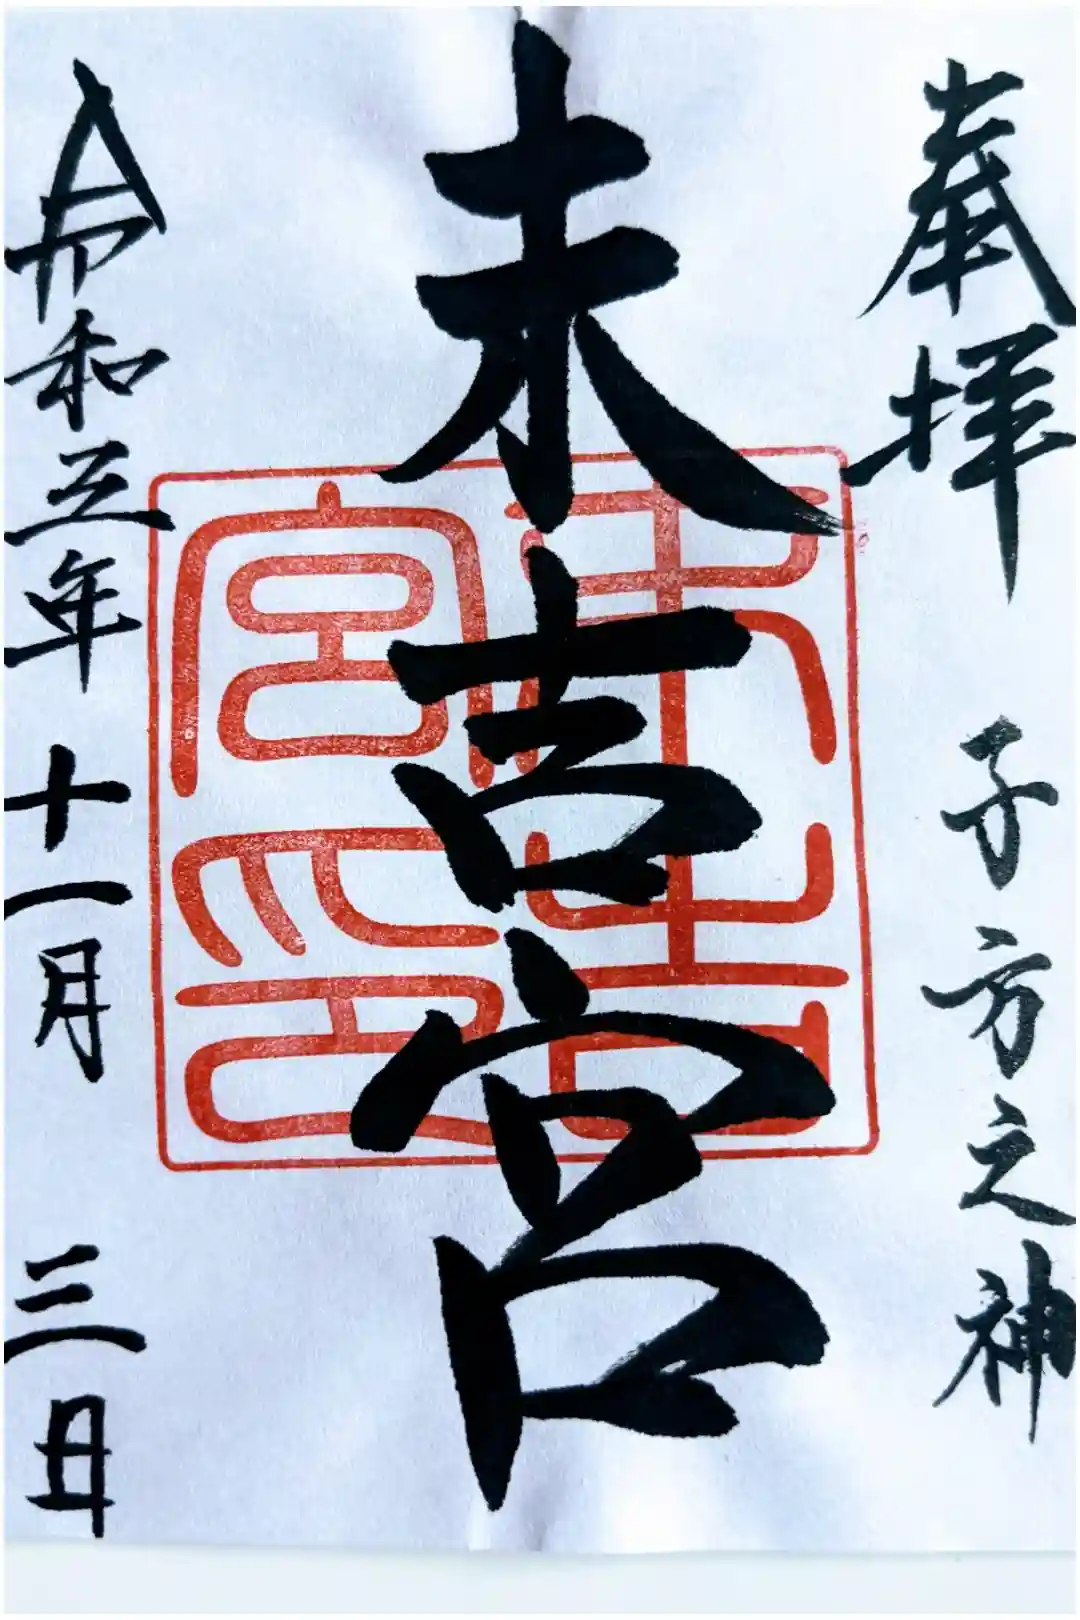 奉拝　子方之神
末吉宮
令和五年　十一月　三日
末吉
宮印